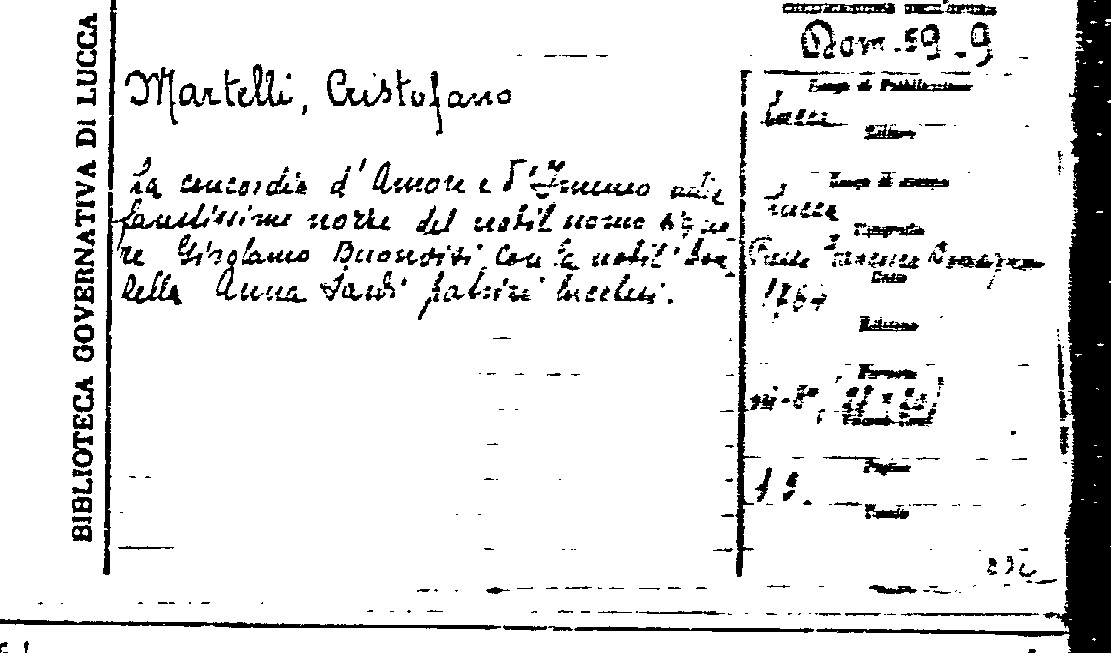 BIBLIOTECA GOVERNATIVA DI LUCCA
Martelli, Cristofano
La concordia d'Amore e d'Imeneo nelle
faustissime nozze del nobil uomo
re Girolamo Buonvisi con la nobil
zella Anna Sardi patrizi lucchesi.
Luogo di Pubblicazione
Lucca
Editore
Luogo di stampa
Lucca
Tipografia
Data
Edizione
Formato
in-8°,
Pagine
19.
Tavole